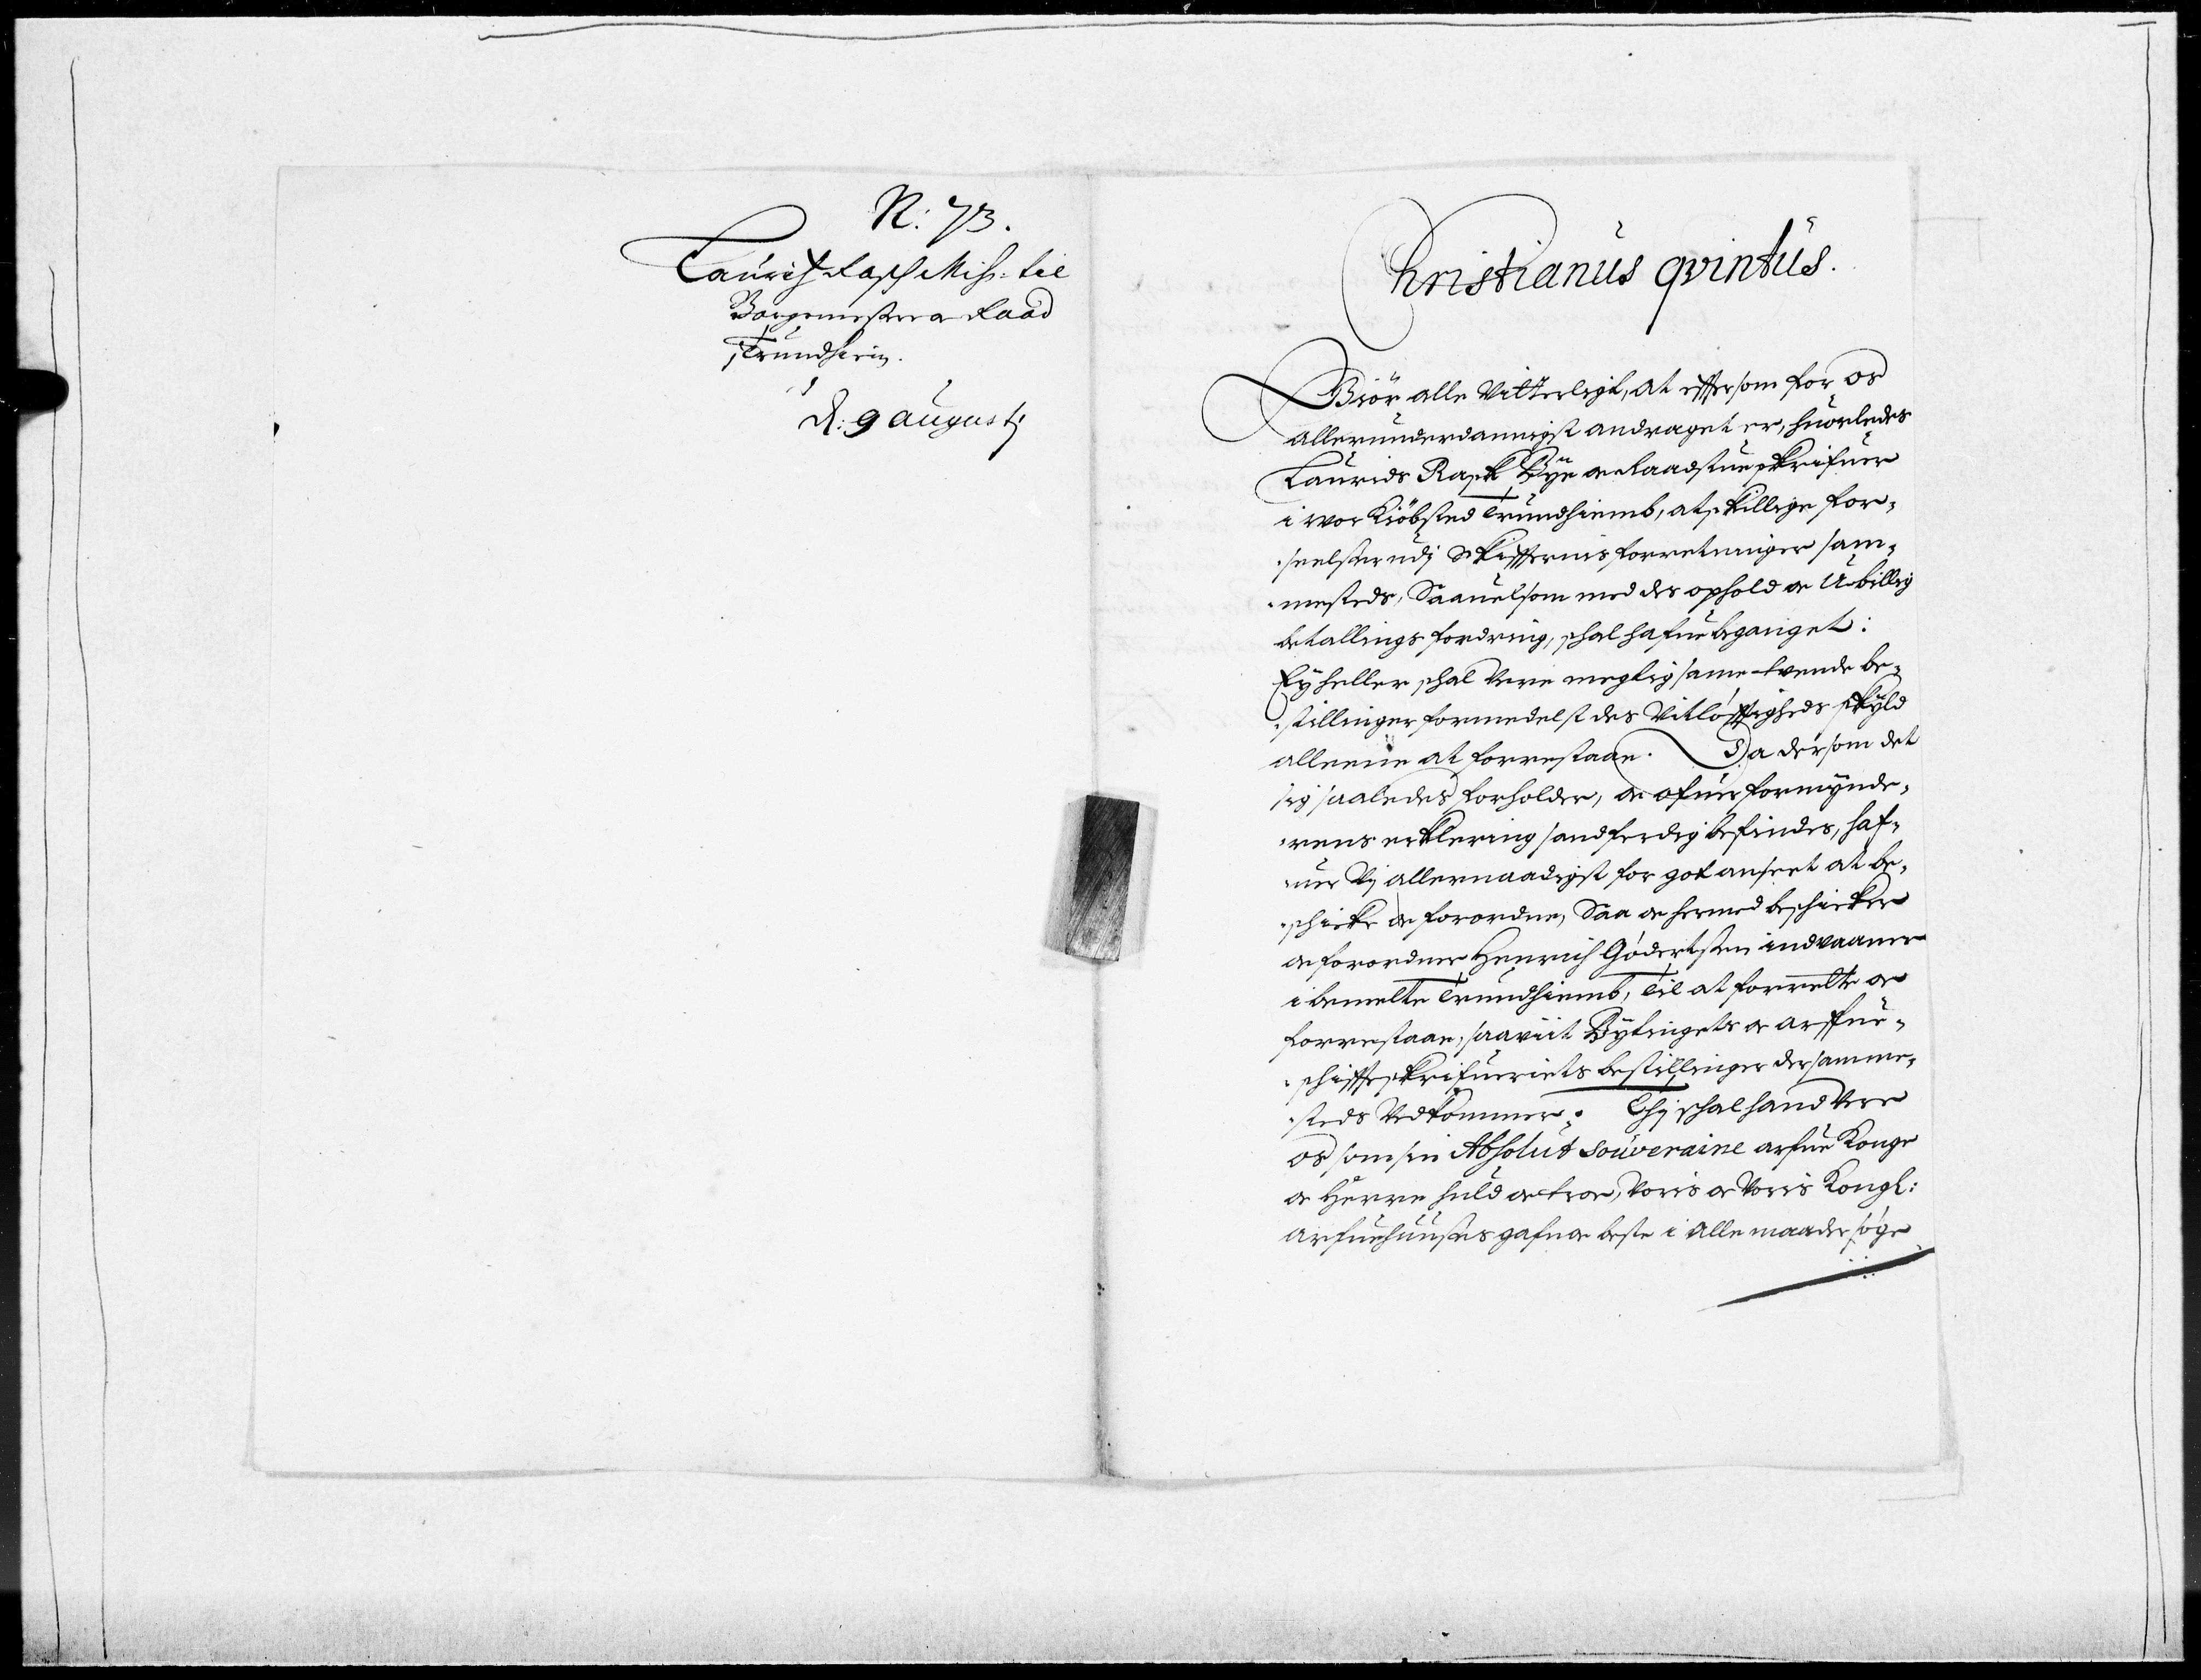 N: 73.
Laurids Rasch Miss: til
Borgemester oc Raad
i Trundhiem.
d: 9 Augustj
Christianus qvintus.
Giör alle Vitterligt, at effter som for os
allerunderdannigst andraget er, huorledes
Laurids Rask Bye oc Raadstue skrifuer
i wor Kiöbsted Trundhiemb, atskillige for-
seelser udj Skiffternis forretninger sam-
mesteds, Saauelsom med des ophold oc Ubillig
betallings fordring, schal hafue beganget:
Ey heller schal Vere megtig samme tvende be-
stillinger formedelst des Vitlöfftigheds skyld
alleene at forrestaae. Da dersom det
sig saaledes forholder, oc ofuer formynde-
rens erklering sandferdig befindes, haf-
uer Vj allernaadigst for got anseet at be-
schicke oc forordne, Saa oc hermed beschicker
oc forordner Henrich Gödertsen indvaaner
i bemelte Trundhiemb, til at forrette oc
forrestaae, saavit Bytingets oc arffue-
schiffteskrifueriets bestillinger der samme-
steds Vedkommer. Thj schal hand Vere
os som sin Absolut souveraine arfue Konge
oc Herre huld oc troe, Voris oc Voris Kongl:
arfuehuuses gafn oc beste i alle maader söge